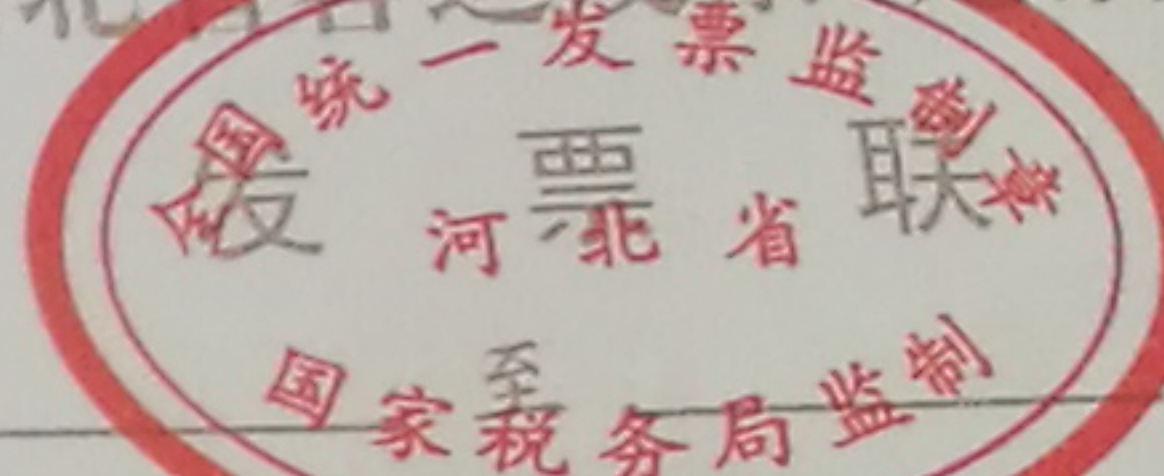 全国统一发票监制章
发票联
河北省
至
国家税务局监制